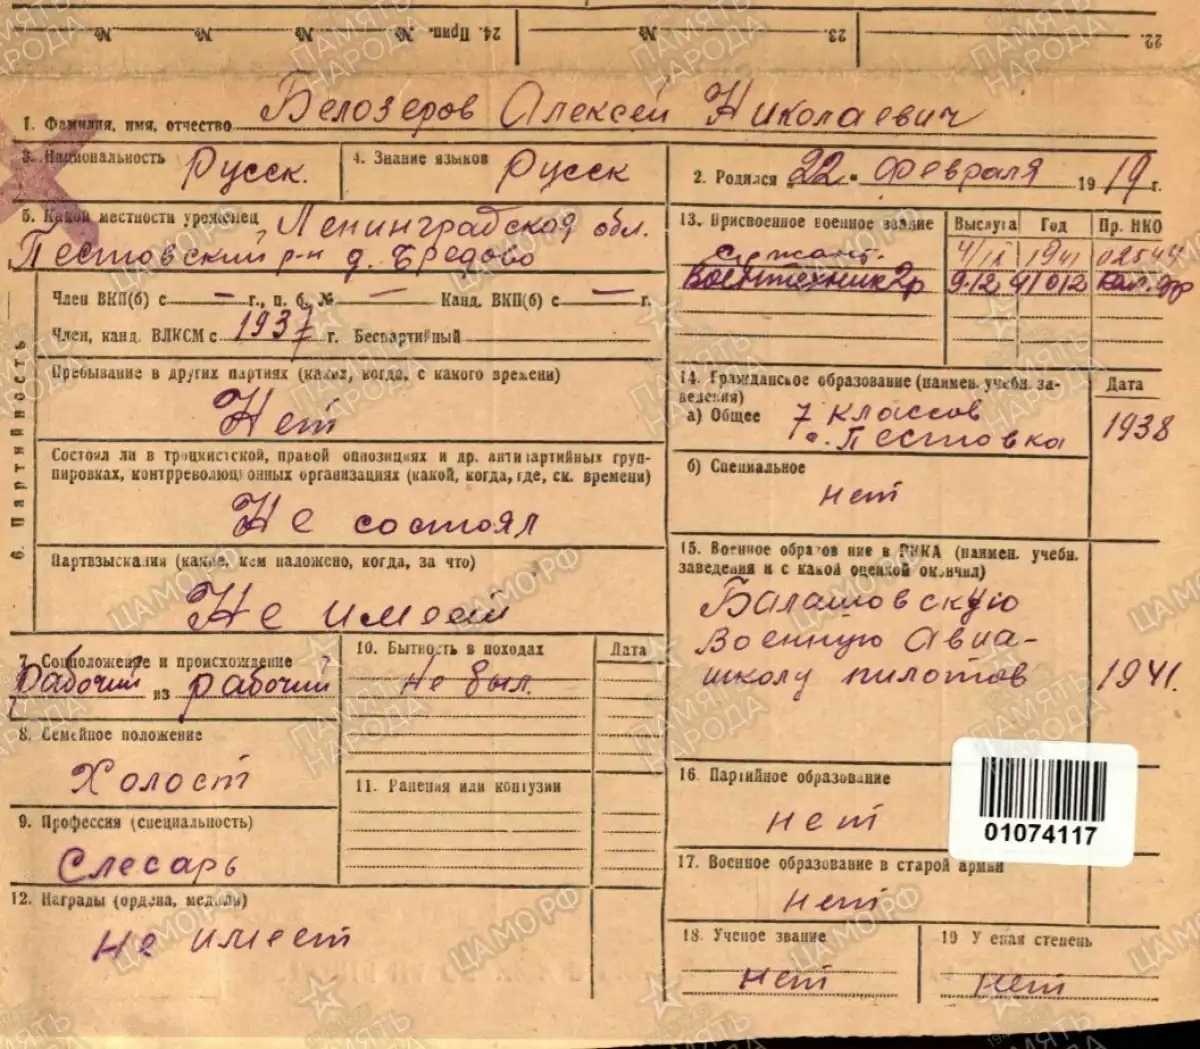 24. Прип. № № № №
23. №
22.
1. Фамилия, имя, отчество Белозеров Алексей Николаевич
3. Национальность Русск.
4. Знание языков Русск
2. Родился 22 " Февраля 1919 г.
5. Какой местности уроженец Ленинградской обл.
Пестовский р-н д.
6. Партийность
Член ВКП(б) с — г., п. б. № — Канд. ВКП(б) с — г.
Член, канд. ВЛКСМ с 1937 г. Беспартийный
Пребывание в других партиях (каких, когда, с какого времени)
Нет
Состоял ли в троцкистской, правой оппозициях и др. антипартийных груп-
пировках, контрреволюционных организациях (какой, когда, где, ск. времени)
Не состоял
Партвзыскания (какие, кем наложено, когда, за что)
Не имеет
7. Соцположение и происхождение
Рабочий из рабочий
8. Семейное положение
Холост
9. Профессия (специальность)
Слесарь
10. Бытность в походах Дата
Не был.
11. Ранения или контузии
12. Награды (ордена, медали)
Не имеет
13. Присвоенное военное звание Выслуга Год Пр. НКО
сержант. 1941 02544
Воентехник 2р
14. Гражданское образование (наимен. учебн. за-
ведения) Дата
а) Общее 7 классов
с. Пестовка 1938
б) Специальное
нет
15. Военное образование в РККА (наимен. учебн.
заведения и с какой оценкой окончил)
Балашовскую
Военную Авиа-
школу пилотов 1941.
16. Партийное образование
нет
01074117
17. Военное образование в старой армии
нет
18. Ученое звание
нет
19 Ученая степень
нет
ПАМЯТЬ НАРОДА
ЦАМО.РФ